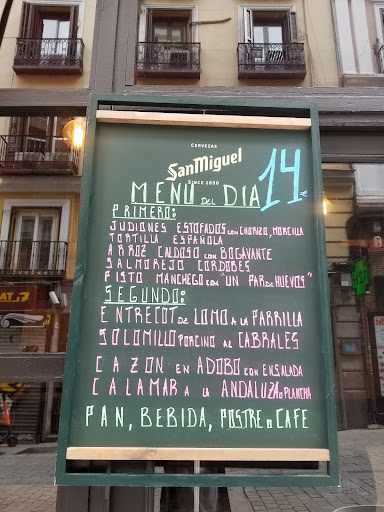 CERVEZAS
SanMiguel
SINCE 1890
MENÚ DEL DIA 14€
PRIMERO:
JUDIONES ESTOFADOS CON CHORIZO, MORCILLA
TORTILLA ESPAÑOLA
ARROZ CALDOSO CON BOGAVANTE
SALMOREJO CORDOBES
PISTO MANCHEGO CON UN PAR DE HUEVOS"
SEGUNDO:
ENTRECOT DE LOMO A LA PARRILLA
SOLOMILLO PORCINO AL CABRALES
CAZON EN ADOBO CON ENSALADA
CALAMAR A LA ANDALUZA O PLANCHA
PAN, BEBIDA, POSTRE O CAFE